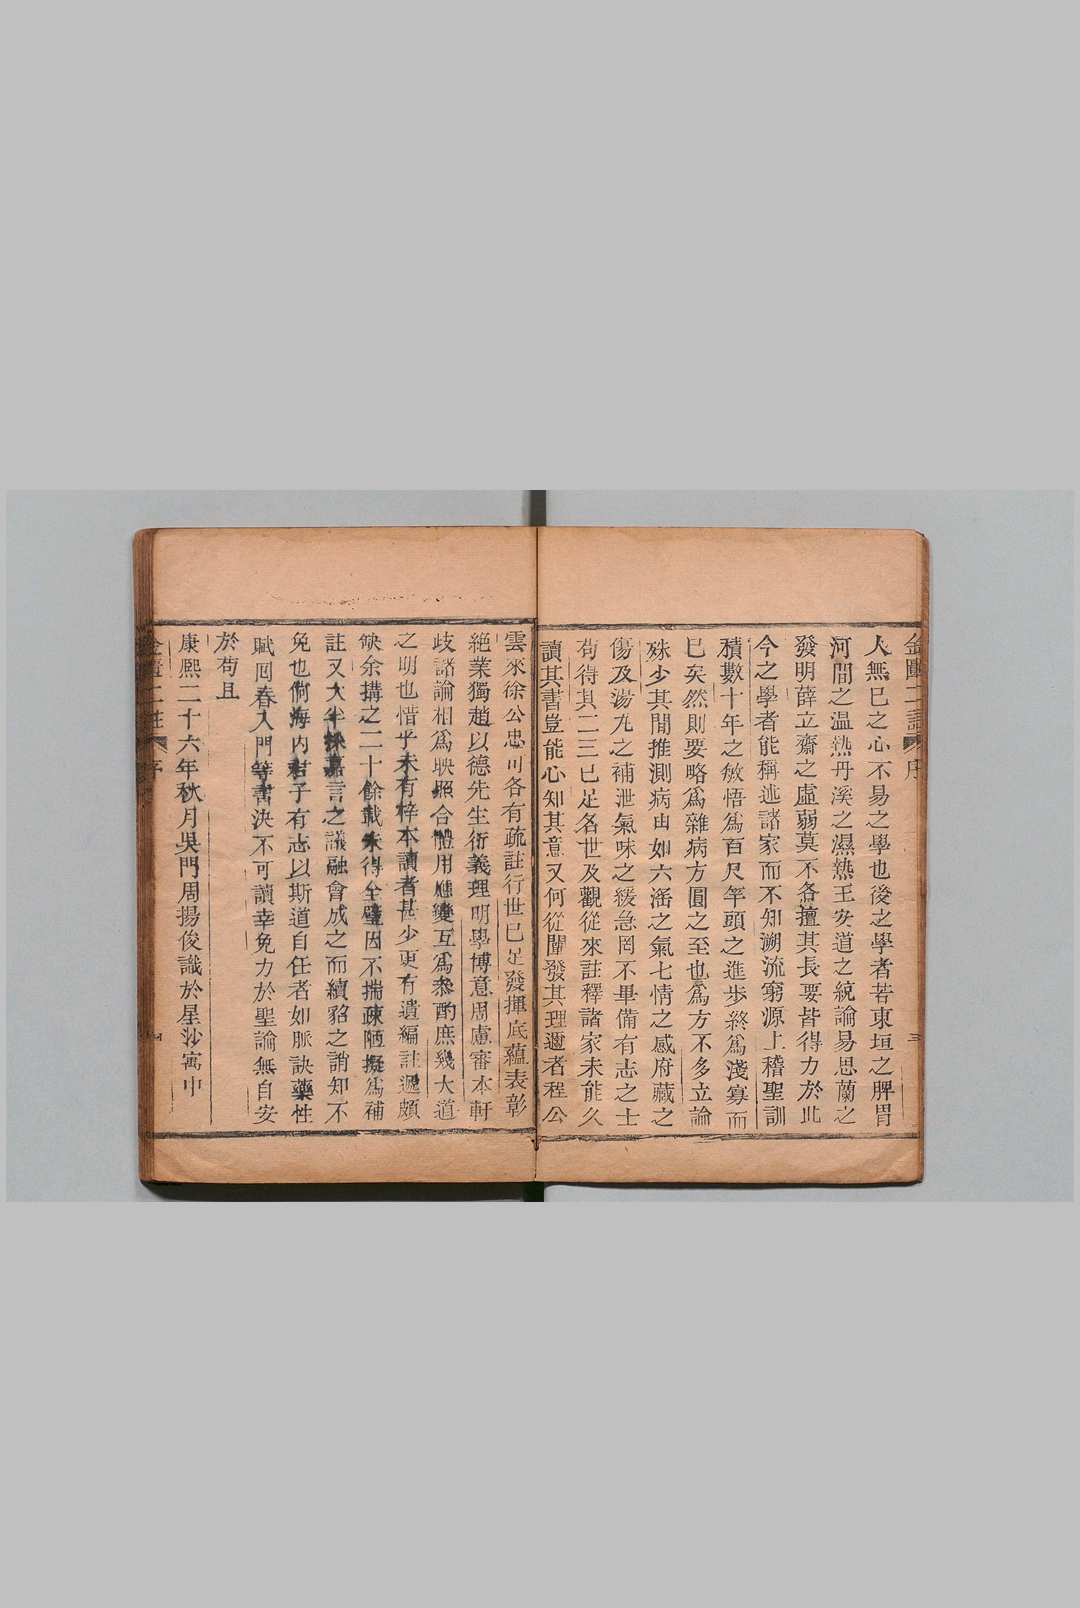 金匱二註 序 三
人無已之心不易之學也後之學者若東垣之脾胃
河間之温熱丹溪之濕熱王安道之統論易思蘭之
發明薛立齋之虛弱莫不各擅其長要皆得力於此
今之學者能稱述諸家而不知溯流窮源上稽聖訓
積數十年之敏悟為百尺竿頭之進步終為淺寡而
已矣然則要略為雜病方圓之至也為方不多立論
殊少其間推測病由如六滛之氣七情之感府藏之
傷及湯九之補泄氣味之緩急罔不畢備有志之士
苟得其二三已足名世及觀從來註釋諸家未能久
讀其書豈能心知其意又何從闡發其理邇者程公
雲來徐公忠可各有疏註行世已足發揮底蘊表彰
絶業獨趙以德先生衍義理明學博意周慮審本軒
歧諸論相為映照合體用應變互為叅酌庶幾大道
之明也惜乎未有梓本讀者甚少更有遺編註遞頗
缺余搆之二十餘載未得全璧因不揣疎陋擬為補
註又大半採嘉言之議融會成之而續貂之誚知不
免也倘海内君子有志以斯道自任者如脈訣藥性
賦囘春入門等書決不可讀幸免力於聖論無自安
於苟且
康熙二十六年秋月吳門周揚俊識於星沙寓中
金匱二註 序 四